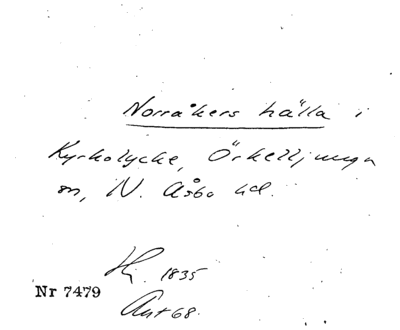 Norråkers hälla i
Kyrkolycke, Örkelljunga
sn, N. Åsbo hd.
Hj. 1835
Nr 7479
Ant 68.